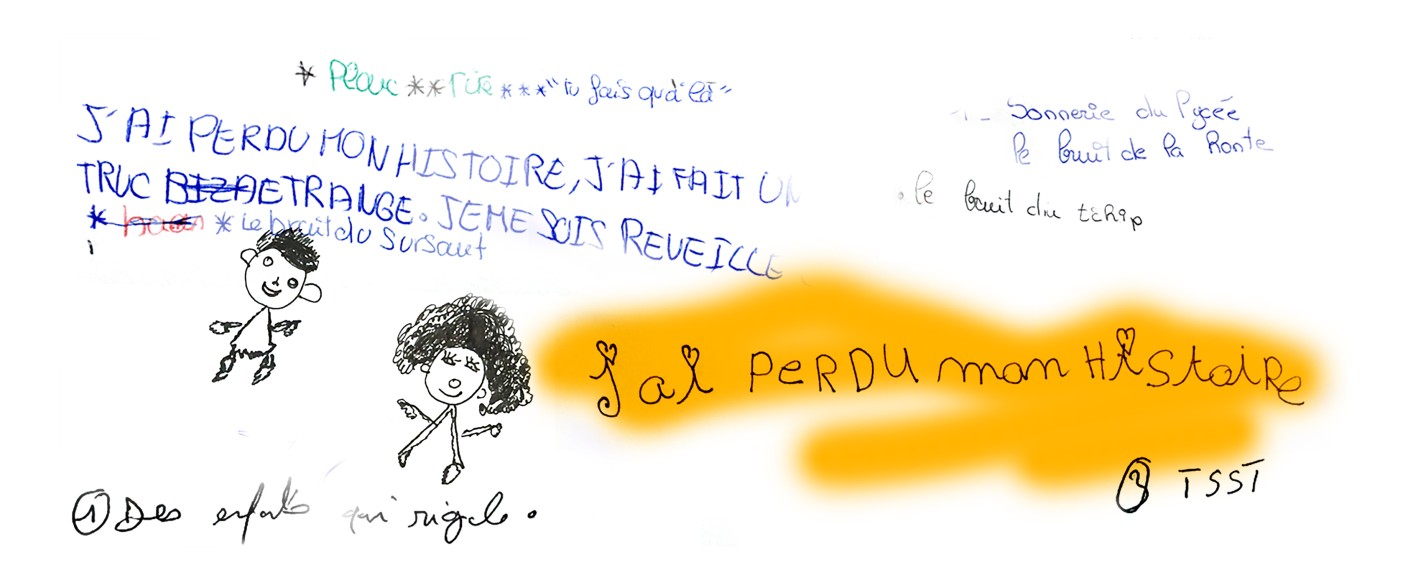 * Pleur ** rire *** "tu fais qu'à là"
J'AI PERDU MON HISTOIRE, J'AI FAIT UN
TRUC BIZA ETRANGE. JE ME SUIS REVEILLE
* Le bruit du sursaut
1 - Sonnerie du lycée
le bruit de la honte
. le bruit du tchip
j'ai PeRDU mon HiStoiRe
① Des enfants qui rigole.
② TSST